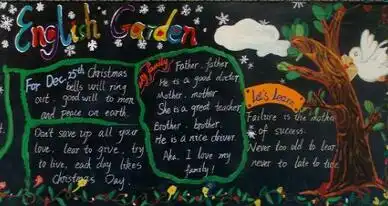 English Garden
For Dec. 25th Christmas
bells will ring
out. good will to man
and peace on earth.
Don't save up all your
love. lear to give. try
to live, each day likes
Christmas Day.
My family
Father. father
He is a good doctor
Mother. mother
She is a great teacher
Brother. brother.
He is a nice driver.
Aha. I love my
family!
Let's learn
Failure is the mother
of success.
Never too old to lear,
never to late to turn